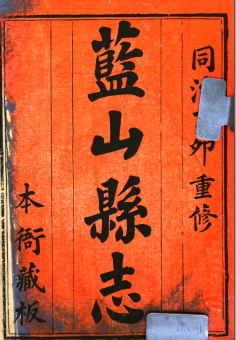 同治 卯重修
藍山縣志
本衙藏板